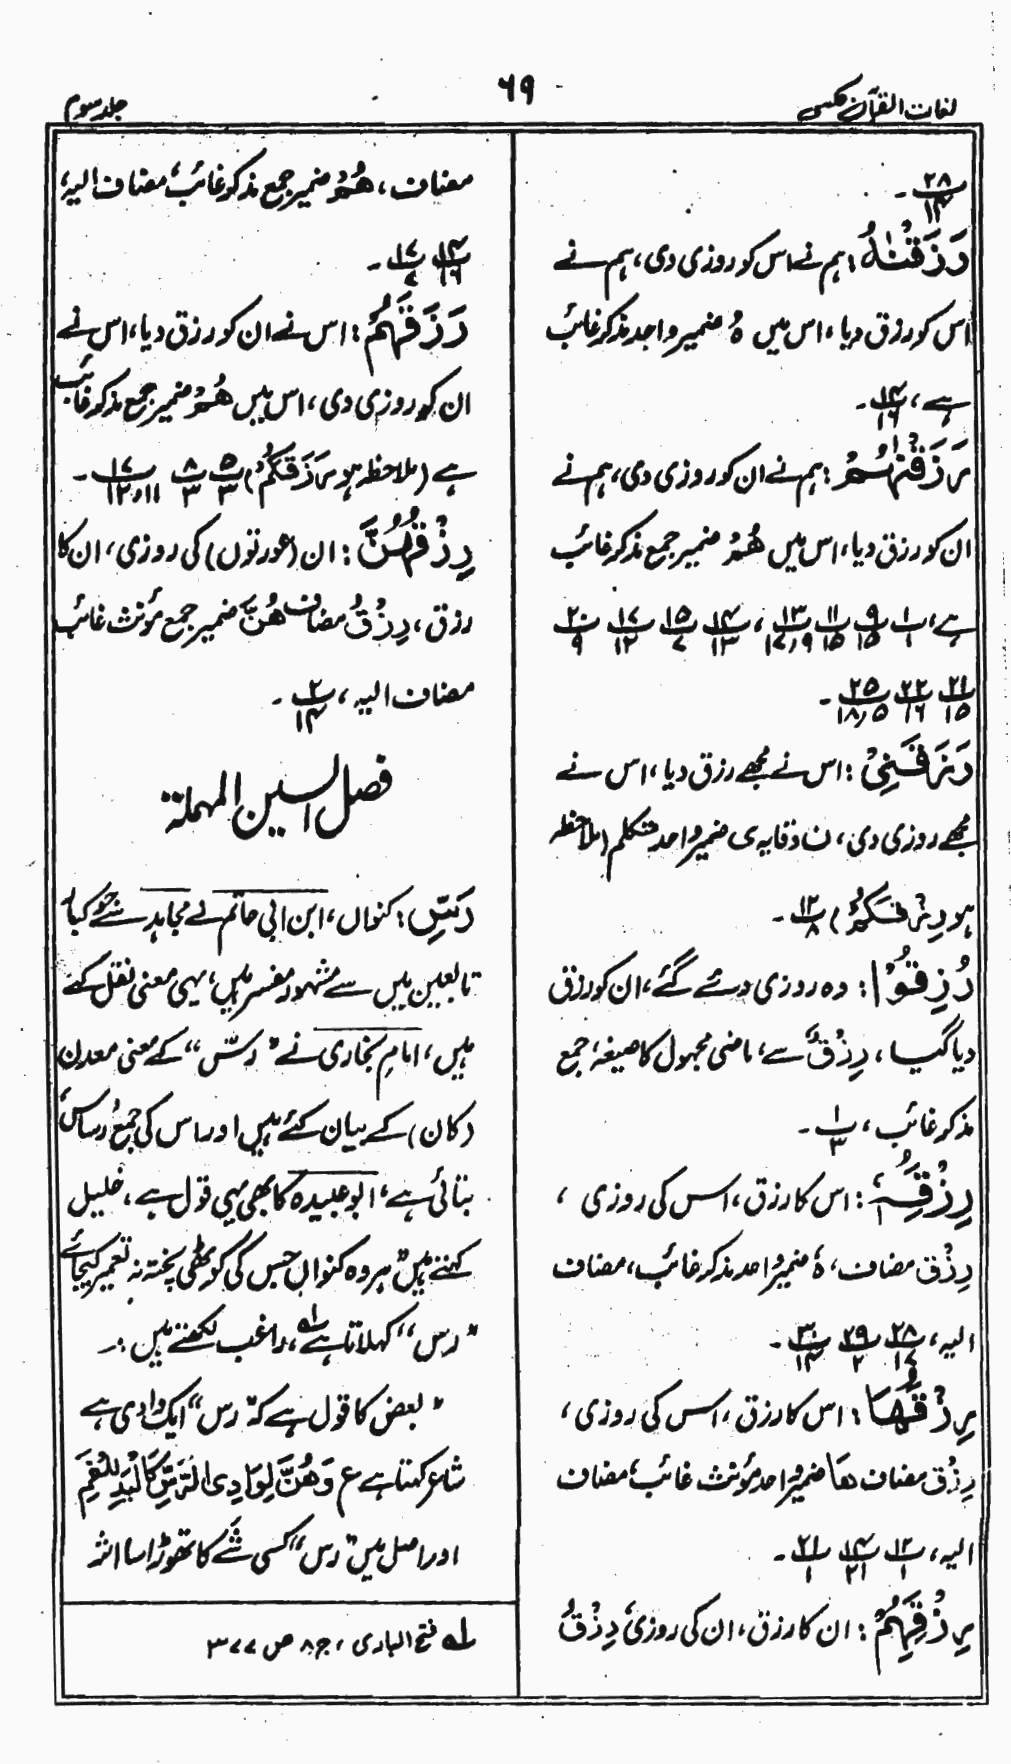 لغات القرآن عکسی
۶۹
جلد سوم
۲۸/۱۴ ۔
رَزَقْنٰہُ : ہم نے اس کو روزی دی، ہم نے
اس کو رزق دیا ، اس میں ہُ ضمیر واحد مذکر غائب
ہے ، ۱۴/۱۶ ۔
رَزَقْنٰہُمْ : ہم نے ان کو روزی دی، ہم نے
ان کو رزق دیا، اس میں ھُمْ ضمیر جمع مذکر غائب
ہے، ۱/۱ ۹/۱۵ ۱۱/۱۵ ۱۳/۱۷،۹ ، ۱۴/۱۳ ۱۵/۷ ۱۷/۱۲ ۲۰/۹
۲۱/۱۵ ۲۲/۱۶ ۲۵/۱۸،۵ ۔
رَزَقَنِیْ : اس نے مجھے رزق دیا ، اس نے
مجھے روزی دی ، ن وقایہ ی ضمیر واحد متکلم (ملاحظہ
ہو رِزْقُکُمْ) ۱۲/۸ ۔
رُزِقُوْا : وہ روزی دئے گئے، ان کو رزق
دیا گیا ، رِزْقٌ سے، ماضی مجہول کا صیغہ، جمع
مذکر غائب ، ۱/۳ ۔
رِزْقِہٖ : اس کا رزق ، اس کی روزی ،
رِزْق مضاف، ہٖ ضمیر واحد مذکر غائب، مضاف
الیہ، ۲۸/۱۷ ۲۹/۲ ۳۰/۱۴ ۔
رِزْقُھَا : اس کا رزق ، اس کی روزی ،
رِزْق مضاف ھَا ضمیر واحد مؤنث غائب، مضاف
الیہ، ۱۲/۱ ۱۴/۲۱ ۲۱/۱ ۔
رِزْقُہُمْ : ان کا رزق ، ان کی روزی رِزْقُ
مضاف ، ھُمْ ضمیر جمع مذکر غائب، مضاف الیہ،
۱۴/۱۶ ۱۷/۷ ۔
رَزَقَہُمْ : اس نے ان کو رزق دیا ، اس نے
ان کو روزی دی ، اس میں ھُمْ ضمیر جمع مذکر غائب
ہے (ملاحظہ ہو رَزَقَکُمْ) ۵/۳ ۸/۳ ۱۷/۱۲،۱۱ ۔
رِزْقُہُنَّ : ان (عورتوں) کی روزی ، ان کا
رزق ، رِزْقُ مضاف ھُنَّ ضمیر جمع مؤنث غائب
مضاف الیہ ، ۲/۱۴ ۔
فصل السین المہملۃ
رَسِّ : کنواں، ابن ابی حاتم نے مجاہد سے جو کبار
تابعین میں سے مشہور مفسر ہیں، یہی معنی نقل کئے
ہیں، امام بخاری نے "رسّ" کے معنی معدن
(کان) کے بیان کئے ہیں اور اس کی جمع رساس
بتائی ہے، ابو عبیدہ کا بھی یہی قول ہے، خلیل
کہتے ہیں "ہر وہ کنواں جس کی کوٹھی پختہ نہ تعمیر کیجائے
"رس" کہلاتا ہے لہ، راغب لکھتے ہیں :۔
" بعض کا قول ہے کہ "رس" ایک وادی ہے
شاعر کہتا ہے ع وَھُنَّ لِوَادِی الرَّسِّ کَالْیَدِ لِلْفَمِ
اور اصل میں "رس" کسی شے کا تھوڑا سا اثر
لہ فتح الباری ، ج ۸ ص ۳۷۷